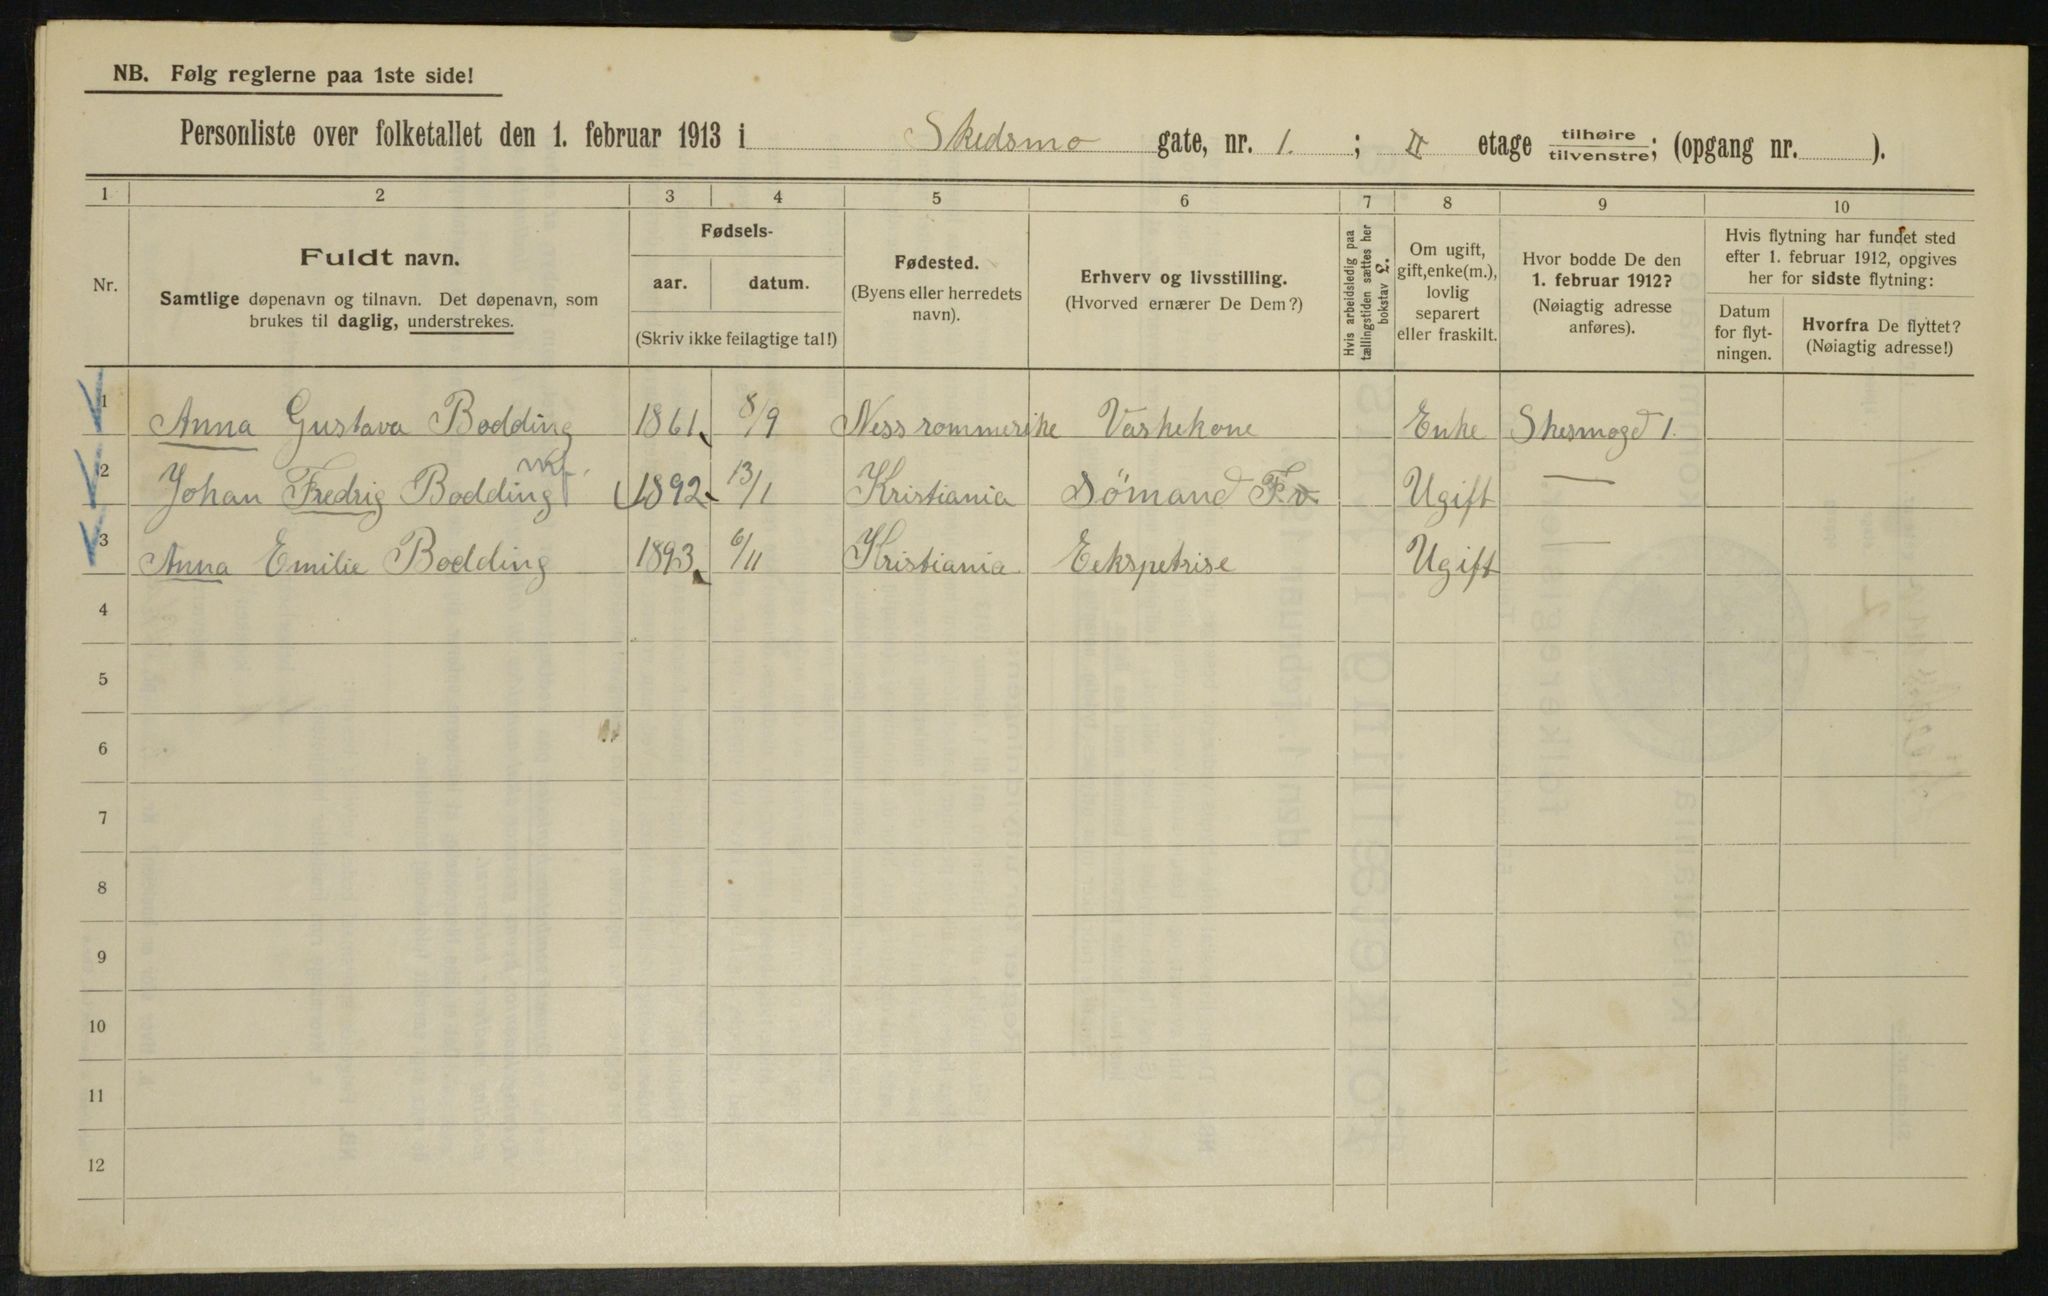 NB. Følg reglerne paa 1ste side!
Personliste over folketallet den 1. februar 1913 i Skedsmo gate, nr. 1. ; II etage tilhøire/tilvenstre; (opgang nr. ).
1 2 3 4 5 6 7 8 9 10
Nr.
Fuldt navn.
Samtlige døpenavn og tilnavn. Det døpenavn, som
brukes til daglig, understrekes.
Fødsels-
aar. datum.
(Skriv ikke feilagtige tal!)
Fødested.
(Byens eller herredets
navn).
Erhverv og livsstilling.
(Hvorved ernærer De Dem?)
Hvis arbeidsledig paa
tællingstiden sættes her
bokstav £.
Om ugift,
gift, enke(m.),
lovlig
separert
eller fraskilt.
Hvor bodde De den
1. februar 1912?
(Nøiagtig adresse
anføres).
Hvis flytning har fundet sted
efter 1. februar 1912, opgives
her for sidste flytning:
Datum
for flyt-
ningen.
Hvorfra De flyttet?
(Nøiagtig adresse!)
1 Anna Gustava Bodding 1861 8/9 Ness rommerike Vaskekone Enke Skesmogd 1.
2 Johan Fredrig Bodding 1892 13/1 Kristiania Sömand F.v. Ugift —
3 Anna Emilie Bodding 1893 6/11 Kristiania Eekspetrise Ugift —
4
5
6
7
8
9
10
11
12